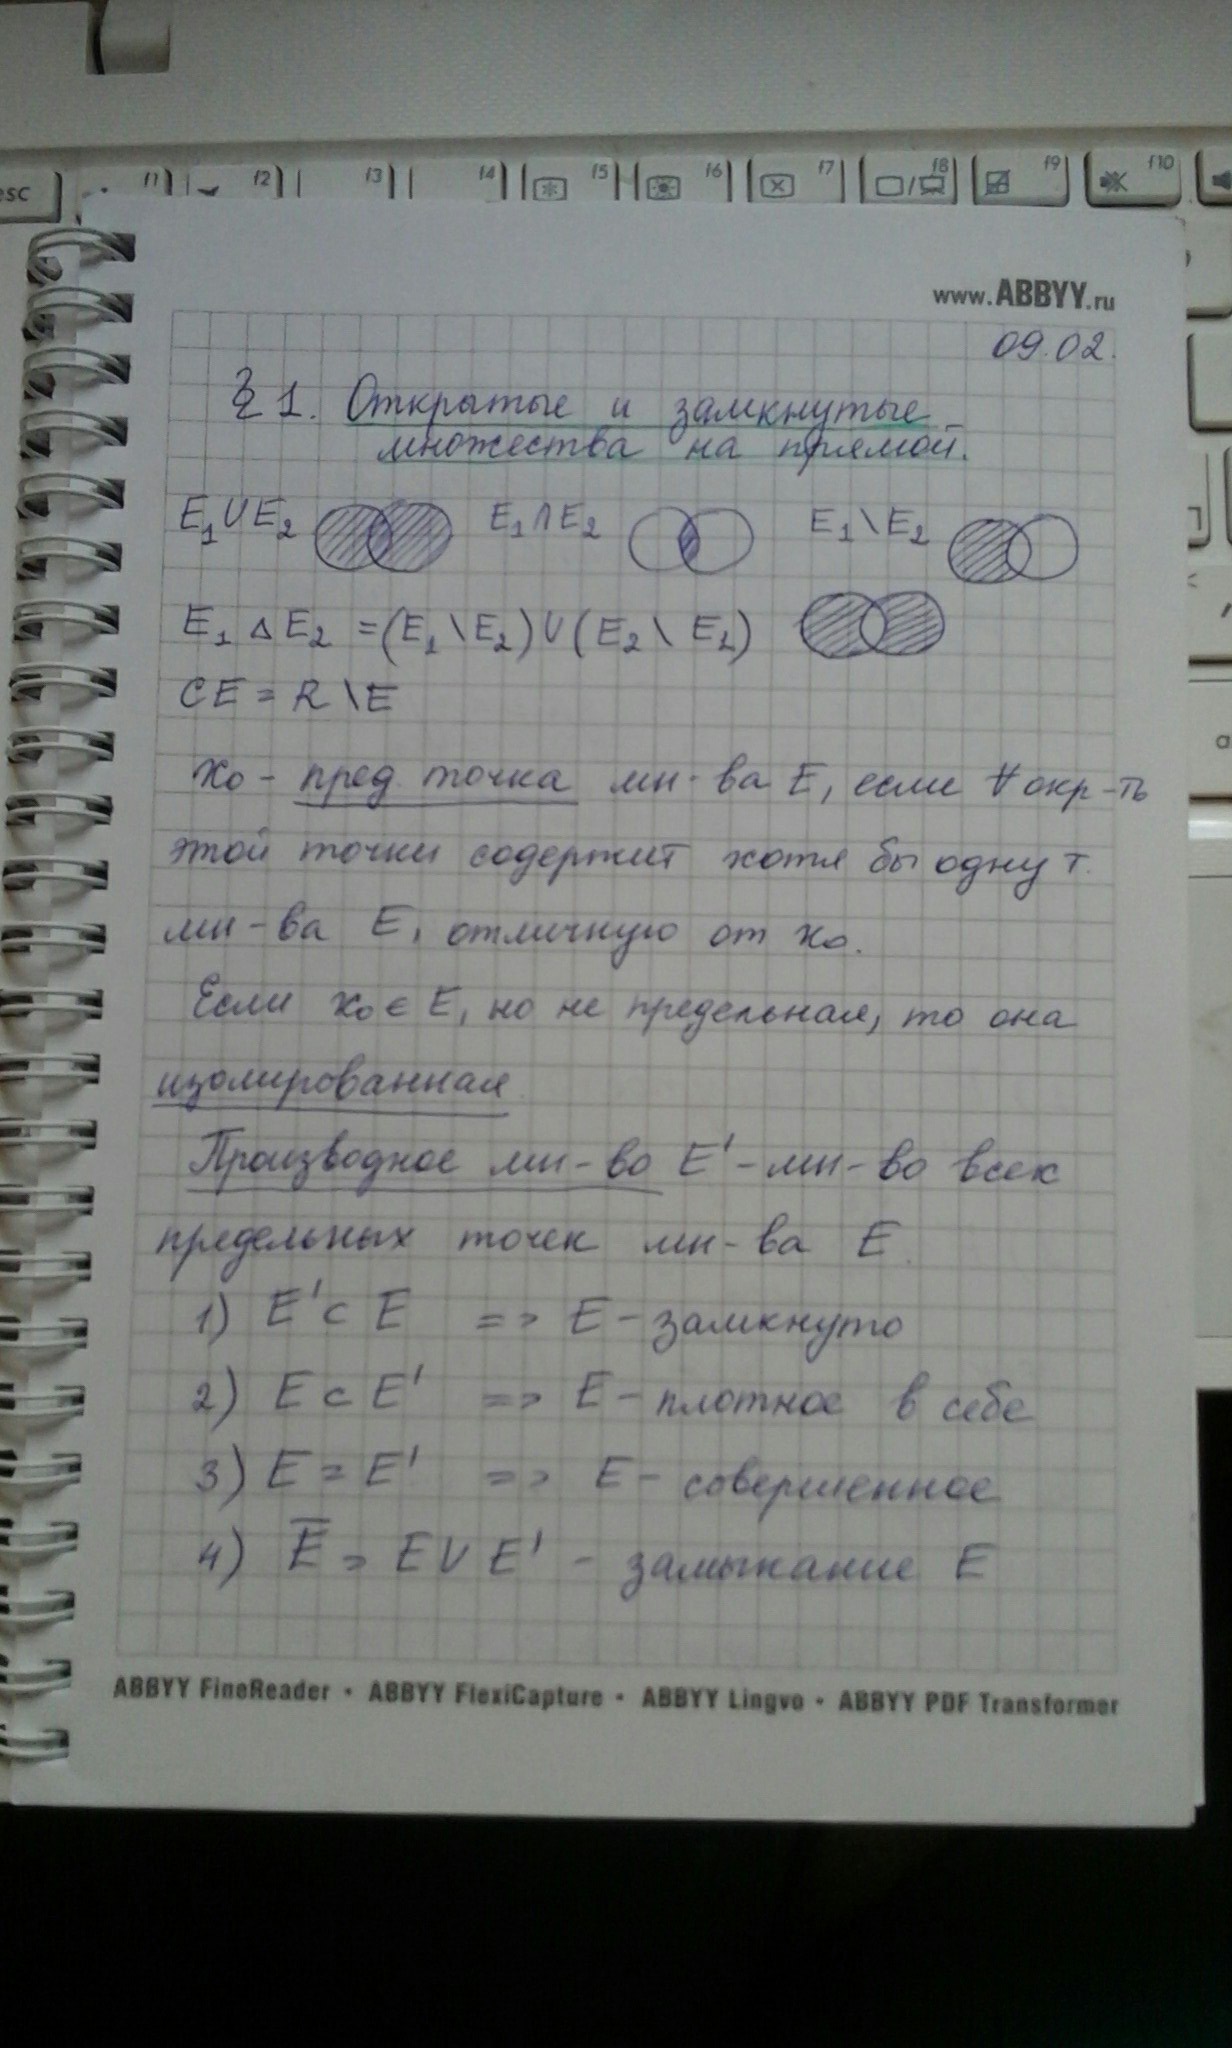 esc f1 f2 f3 f4 f5 f6 f7 f8 f9 f10
www.ABBYY.ru
09.02.
§ 1. Открытые и замкнутые
множества на прямой.
E₁ ∪ E₂ E₁ ∩ E₂ E₁ \ E₂
E₁ △ E₂ = (E₁ \ E₂) ∪ (E₂ \ E₁)
CE = R \ E
x₀ - пред. точка мн-ва E, если ∀ окр-ть
этой точки содержит хотя бы одну т.
мн-ва E, отличную от x₀.
Если x₀ ∈ E, но не предельная, то она
изолированная
Производное мн-во E' - мн-во всех
предельных точек мн-ва E
1) E' ⊂ E => E - замкнуто
2) E ⊂ E' => E - плотное в себе
3) E = E' => E - совершенное
4) E̅ = E ∪ E' - замыкание E
ABBYY FineReader • ABBYY FlexiCapture • ABBYY Lingvo • ABBYY PDF Transformer